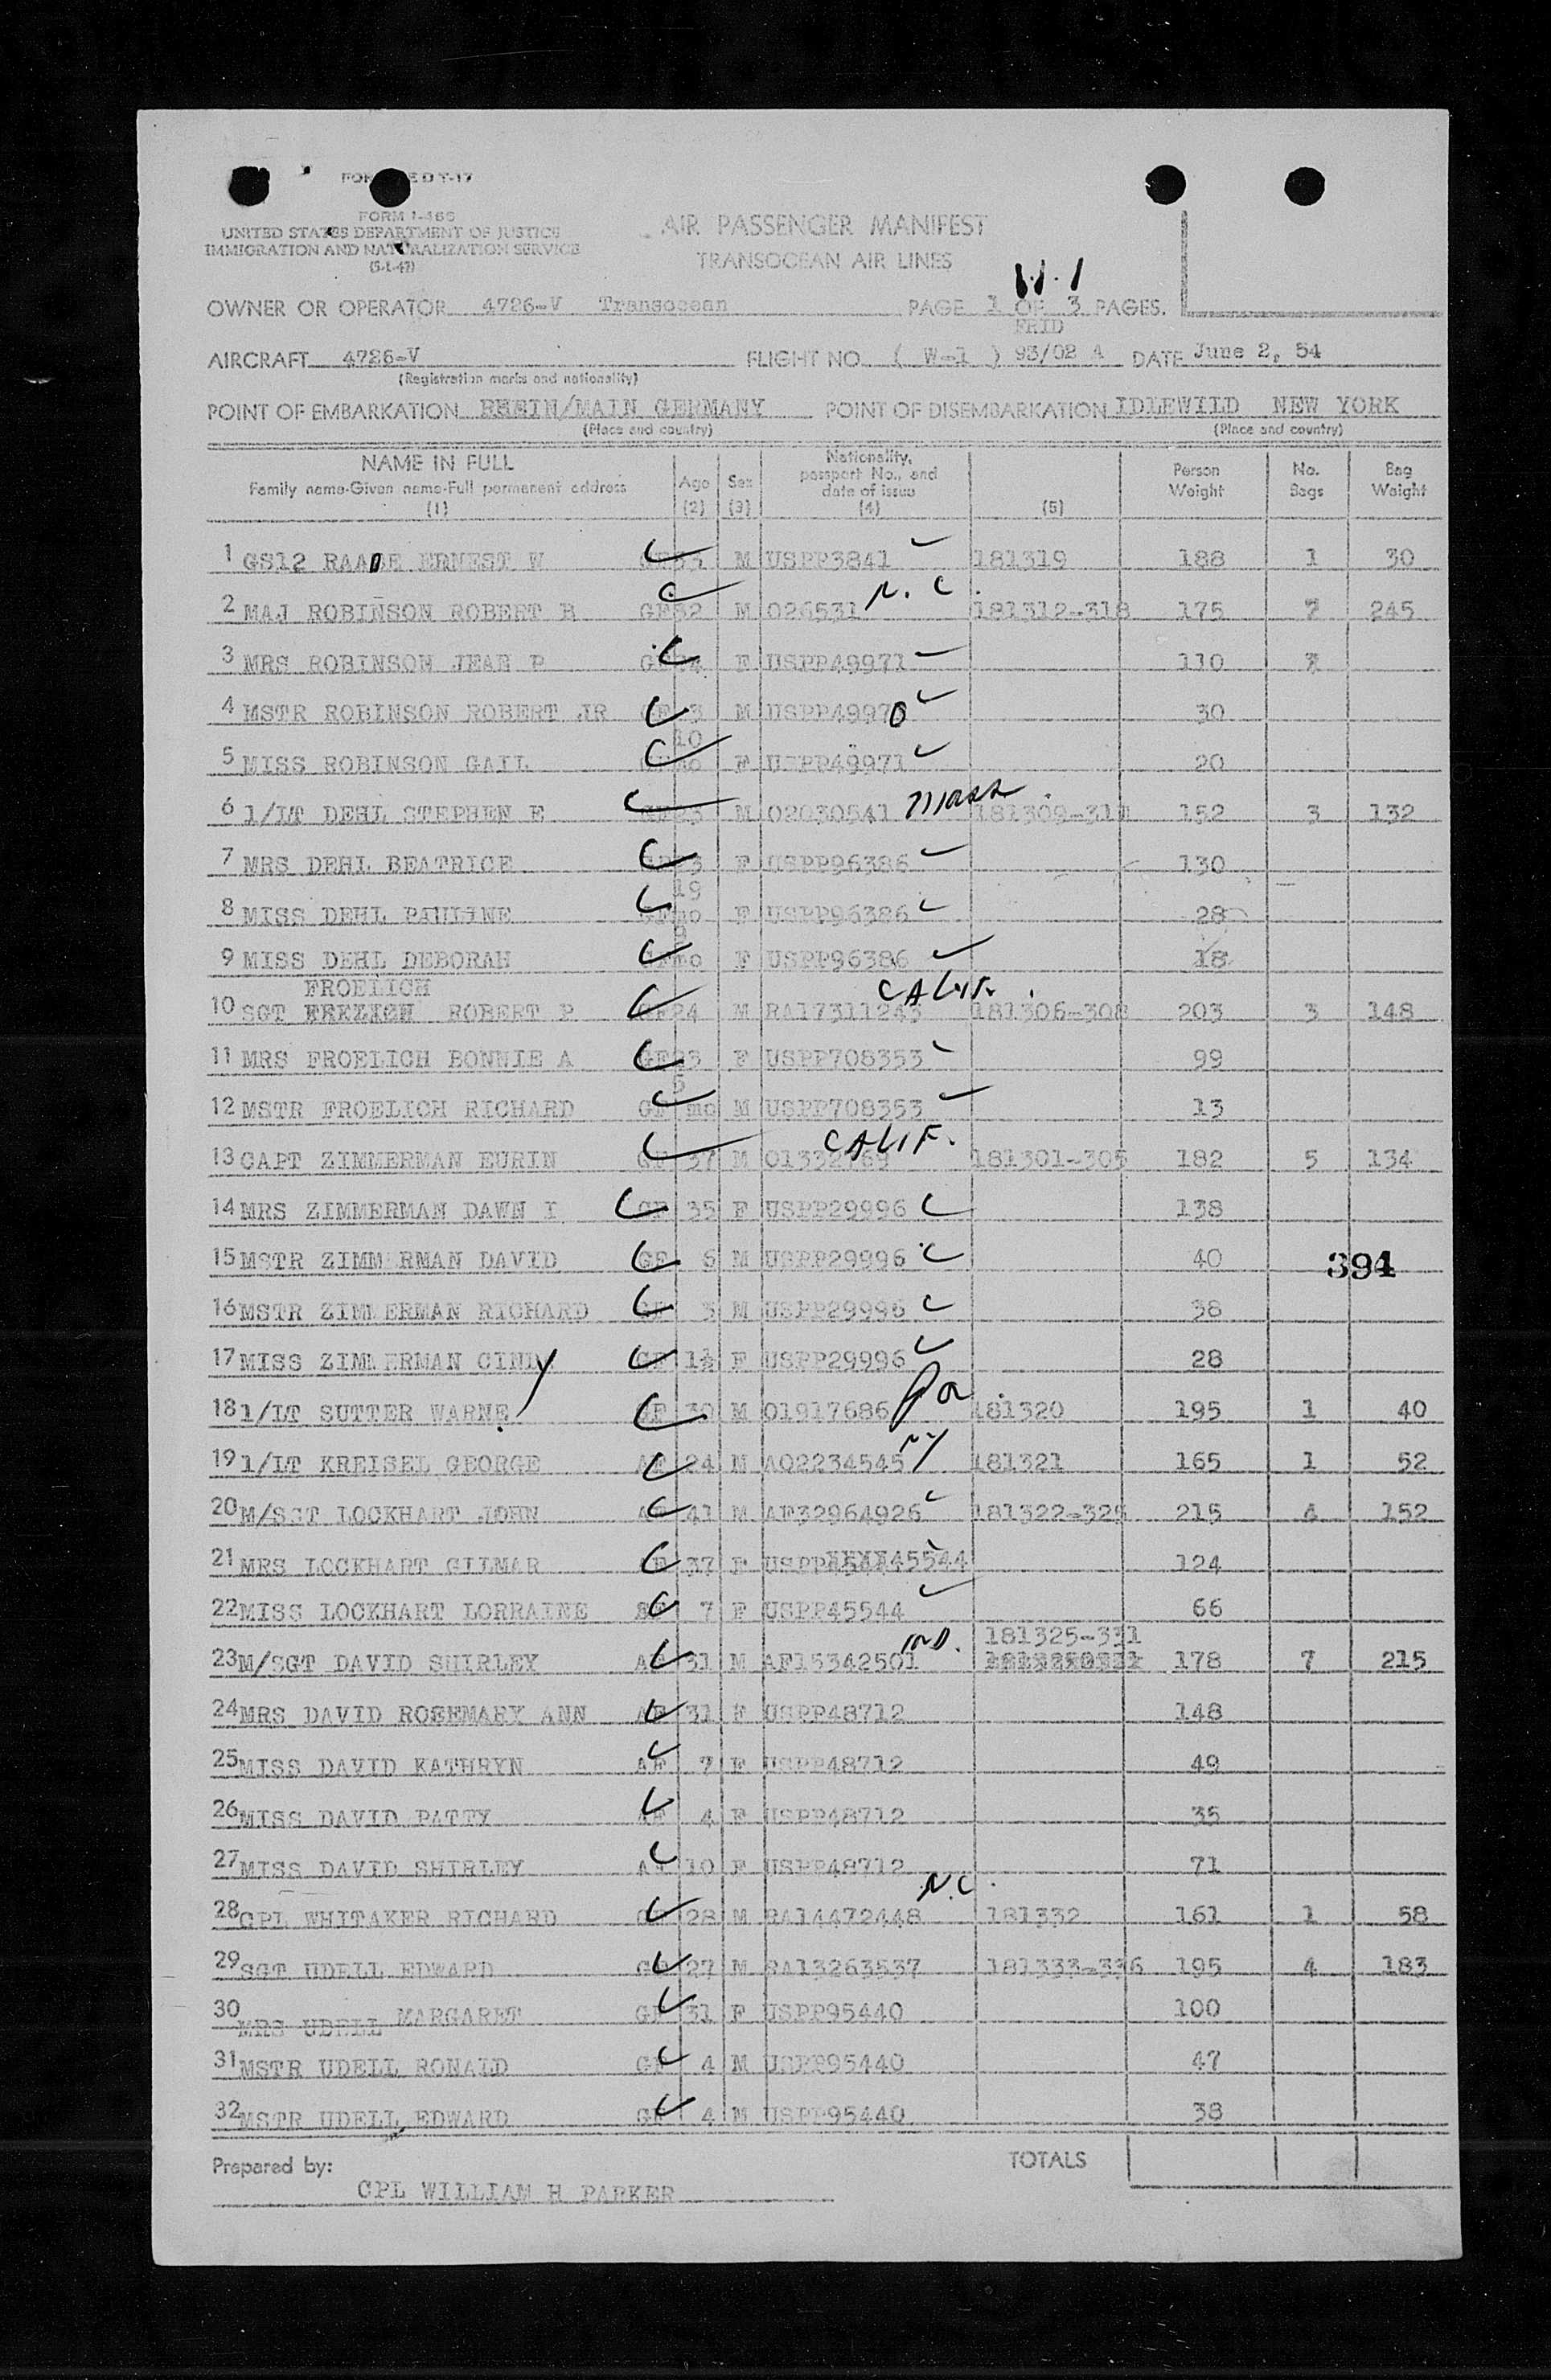 FORM 1-466
UNITED STATES DEPARTMENT OF JUSTICE
IMMIGRATION AND NATURALIZATION SERVICE
(5-1-47)
AIR PASSENGER MANIFEST
TRANSOCEAN AIR LINES
W-1
OWNER OR OPERATOR 4726-V Transocean PAGE 1 OF 3 PAGES.
FRID
AIRCRAFT 4726-V FLIGHT NO. ( W-1 ) 93/02 A DATE June 2, 54
(Registration marks and nationality)
POINT OF EMBARKATION RHEIN/MAIN GERMANY POINT OF DISEMBARKATION IDLEWILD NEW YORK
(Place and country) (Place and country)
NAME IN FULL Family name-Given name-Full permanent address (1) Age (2) Sex (3) Nationality, passport No., and date of issue (4) (5) Person Weight No. Bags Bag Weight
1 GS12 ERNEST W M USPP3841 181319 188 1 30
2 MAJ ROBINSON ROBERT B GF 32 M 026531 N.C. 181312-318 175 7 245
3 MRS ROBINSON JEAN P F USPP49971 110
4 MSTR ROBINSON ROBERT JR GF 3 M 30
5 MISS ROBINSON GAIL 10 mo F USPP49971 20
6 1/LT DEHL STEPHEN E M 02030541 Mass. 181309-311 152 3 132
7 MRS DEHL BEATRICE F USPP96386 130
8 MISS DEHL PAULINE 19 mo F USPP96386 28
9 MISS DEHL DEBORAH mo F USPP96386 18
FROELICH
10 SGT ROBERT P GF 24 M RA17311243 CALIF. 181306-308 203 3 148
11 MRS FROELICH BONNIE A GF 23 F USPP708353 99
12 MSTR FROELICH RICHARD GF 5 mo M USPP708353 13
13 CAPT ZIMMERMAN EURIN GF 37 M CALIF. 181301-305 182 5 134
14 MRS ZIMMERMAN DAWN I GF 35 F USPP29996 138
15 MSTR ZIMMERMAN DAVID GF 6 M USPP29996 40
394
16 MSTR ZIMMERMAN RICHARD GF 3 M USPP29996 38
17 MISS ZIMMERMAN CINDY GF 1½ F USPP29996 28
18 1/LT SUTTER WARNE GF 30 M 01917686 Pa. 181320 195 1 40
19 1/LT KREISEL GEORGE AF 24 M AO2234545 NY 181321 165 1 52
20 M/SGT LOCKHART JOHN AF 41 M AF32964926 181322-325 215 4 152
21 MRS LOCKHART GILMAR AF 37 F 45544 124
22 MISS LOCKHART LORRAINE 7 F USPP45544 66
181325-331
23 M/SGT DAVID SHIRLEY AF 31 M AF15342501 IND. 178 7 215
24 MRS DAVID ROSEMARY ANN AF 31 F USPP48712 148
25 MISS DAVID KATHRYN AF 7 F USPP48712 49
26 MISS DAVID PATTY AF 4 F USPP48712 35
27 MISS DAVID SHIRLEY AF 10 F USPP48712 71
28 CPL WHITAKER RICHARD GF 28 M RA14472448 N.C. 181332 161 1 58
29 SGT UDELL EDWARD GF 27 M RA13263537 181333-336 195 4 183
30 MRS UDELL MARGARET GF 31 F USPP95440 100
31 MSTR UDELL RONALD GF 4 M USPP95440 47
32 MSTR UDELL EDWARD GF 4 M USPP95440 38
Prepared by: TOTALS
CPL WILLIAM H PARKER